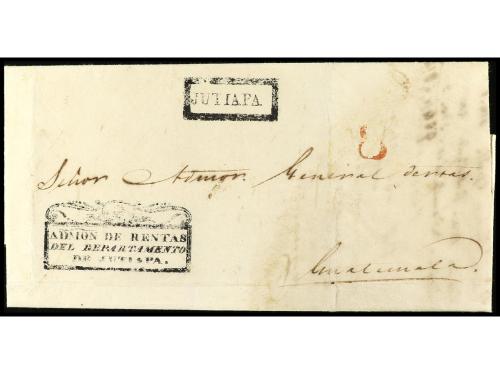 JUTIAPA
8
Señor Admor. General de rtas.
ADMON DE RENTAS
DEL DEPARTAMENTO
DE JUTIAPA.
Guatemala.